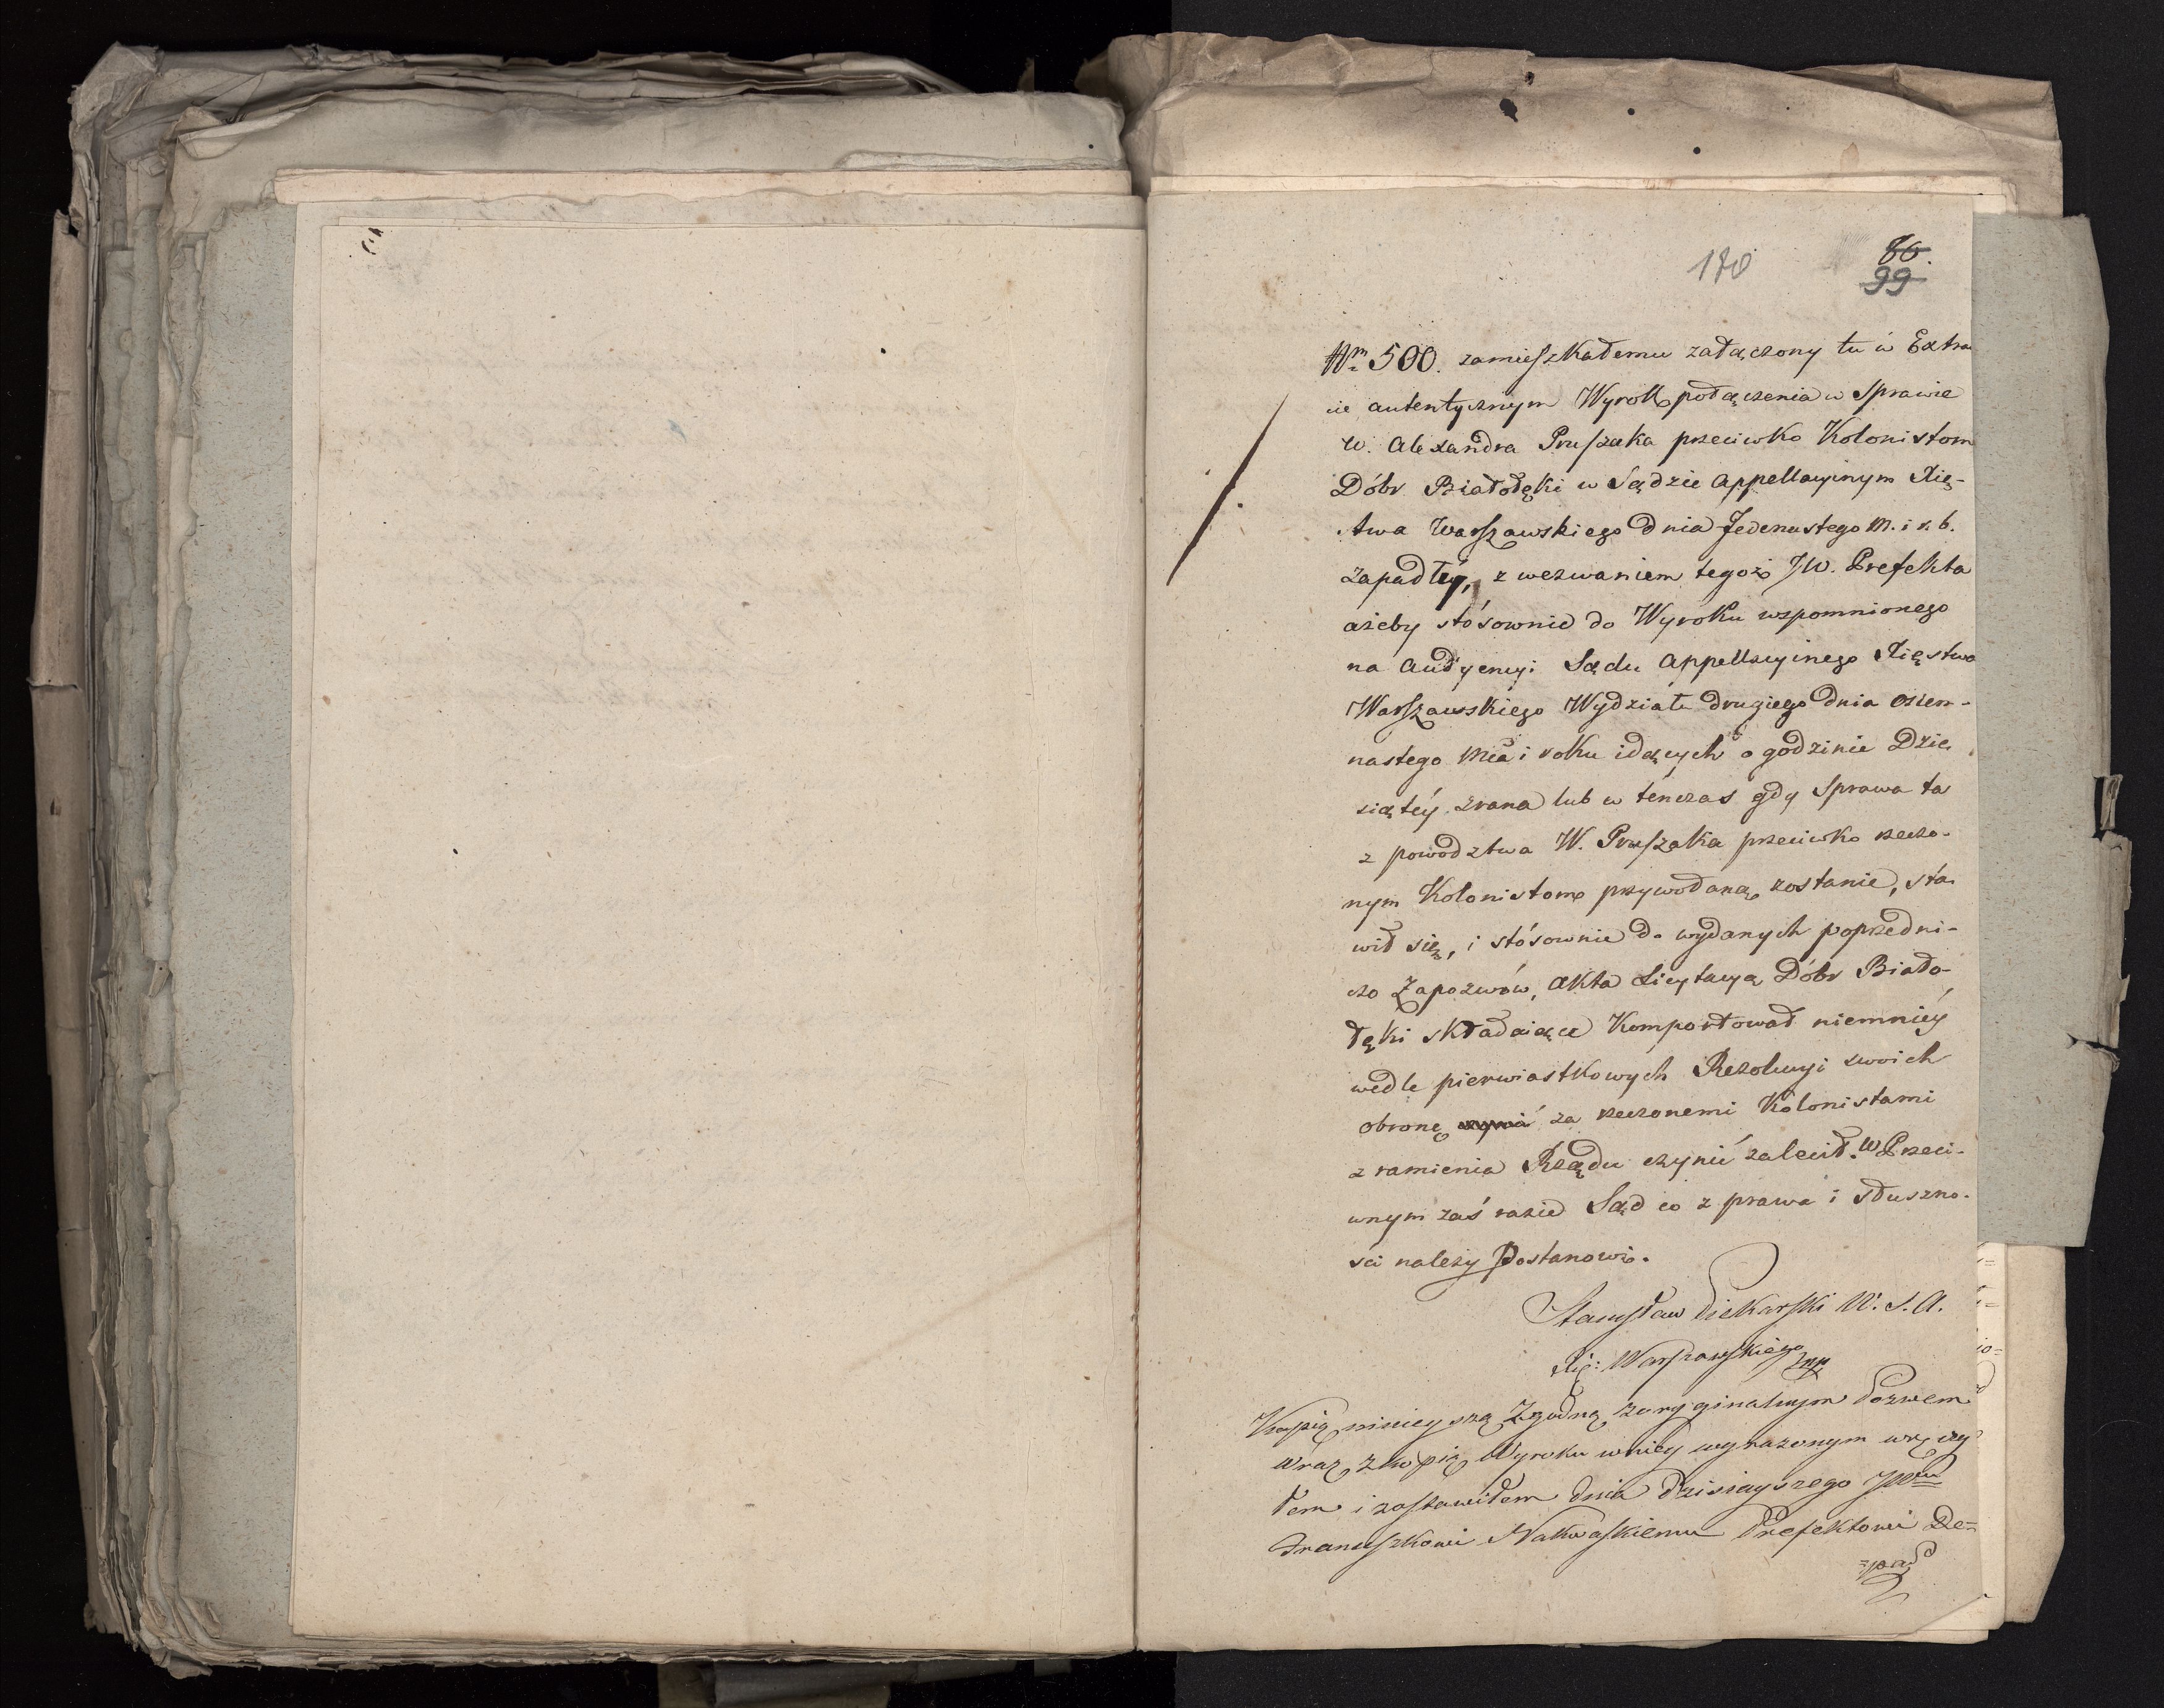 180
80.
99
Nrm 500. zamieszkałemu załączony tu w Extra
cie autentycznym Wyrok połączenia w Sprawie
W. Alexandra Pruszaka przeciwko Kolonistom
Dóbr Białołęki w Sądzie Appellacyinym Xię-
stwa Warszawskiego dnia Jedenastego m. i r. b.
zapadłey, z wezwaniem tegoż JW. Prefekta
ażeby stósownie do Wyroku wspomnionego
na Audyencyi Sądu Appellacyinego Xięstwa
Warszawskiego Wydziału drugiego dnia osiem-
nastego Mca i roku idących o godzinie Dzie
siątéy zrana lub w tenczas gdy Sprawa ta
z powodztwa W. Pruszaka przeciwko rzeczo-
nym Kolonistom przywołaną zostanie, sta-
wił się, i stósownie do wydanych poprzedni-
czo Zapozwów, Akta Licytacyą Dóbr Biało-
łęki składaiące komportował niemniéy
wedle pierwiastkowych Rezolucyi swoich
obronę czynić za rzeczonemi Kolonistami
z ramienia Rządu czynić zalecił. W Przeci-
wnym zaś razie Sąd co z prawa i słuszno-
sci należy postanowi.
Stanisław Piekarski W. S. A.
Xię: Warszawskiego mp
Kopią ninieyszą Zgodną z oryginalnym Pozwem
wraz z kopią Wyroku w niey wyrażonym wręczy
łem i zostawiłem dnia dzisiayszego JWmu
Franciszkowi Nakwaskiemu Prefektowi De=
=par